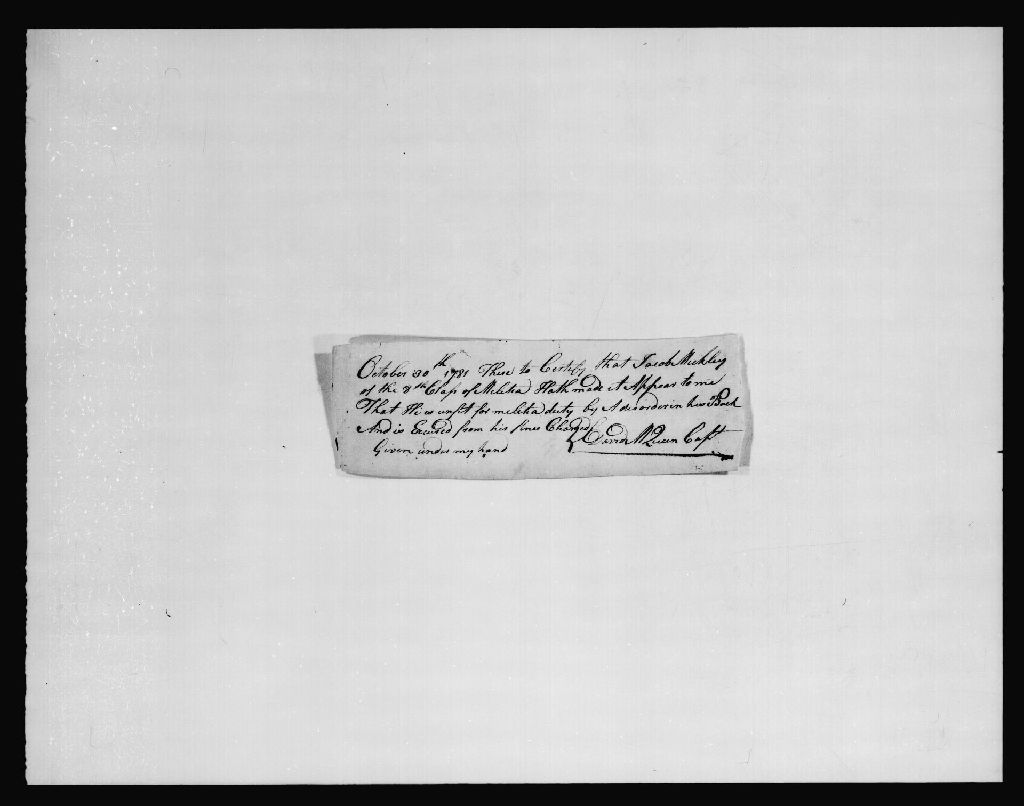 October 30th 1781 These to Certify that Jacob Mickley
of the 8th Class of Melitia Hath made it Appear to me
That He is unfit for melitia duty by A disorder in his Back
And is Excused from his fines Charged
Given under my hand David McQueen Capt